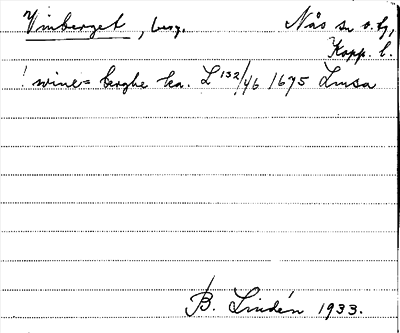 Vinberget, berg.
Nås sn o. hd,
Kopp. l.
! wine= berghe ka. L 132/46 1675 Lmsa
B. Lindén 1933.